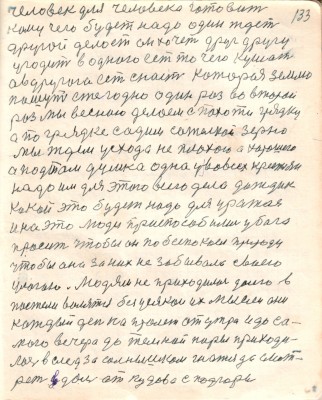 человек для человека готовит
133
кому чего будет надо один ждет
другой делает он хочет друг другу
угодит в одного ест то чего кушает
а вдругога ест спает которая землю
пашут ежегодно один раз во второй
раз мы весною делаем спахоти грядку
а по грядке садим сотской зерно
мы ждем усхода не плохого а хорошего
а под там душка одна у во всех
надо им для этого всего дела дождик
какой это будет надо для уражая
и на это люди приспособили у бога
просит чтобы он побеспокоил природу
чтобы она за них не забывала своего
. Людям не приходилось долго в
постели валятся без усяких их мыслей они
каждый ден на пролет от утра и до са-
мого вечера до темной поры приходи-
лас в след за солнышком гнатся да смот-
рет откудова с подгоры